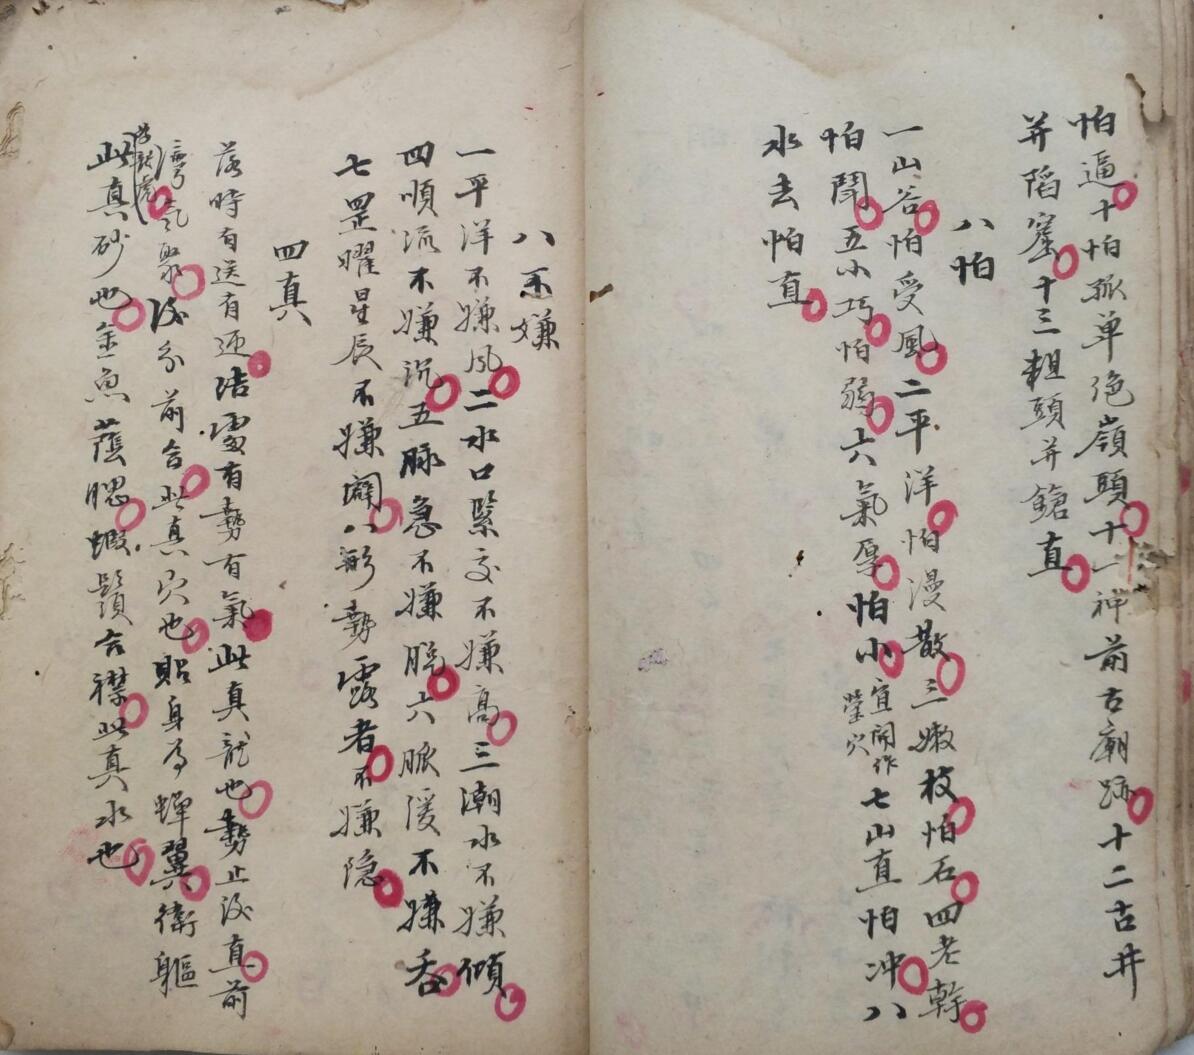 怕逼十怕孤单绝嶺頭十一神前古廟跡十二古井
并陷窟十三粗頭并鎗直
八怕
一山谷怕受風二平洋怕漫散三嫩枝怕石四老幹
怕鬪五小巧怕弱六氣厚怕小宜開作塋穴七山直怕冲八
水去怕直
八不嫌
一平洋不嫌風二水口緊交不嫌高三潮水不嫌傾
四順流不嫌沉五脉急不嫌脱六脈緩不嫌吞
七罡曜星辰不嫌斓八形势露者不嫌隐
四真
落時有送有迎结處有勢有氣此真龍也勢止後直前
湾氣聚後分前合此真穴也貼身為蟬翼衛軀
為龍虎
此真砂也金魚蔭腮蝦鬚合襟此真水也